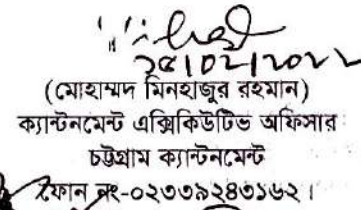 ১৫/০২/২০২২
(মোহাম্মদ মিনহাজুর রহমান)
ক্যান্টনমেন্ট এক্সিকিউটিভ অফিসার
চট্টগ্রাম ক্যান্টনমেন্ট
ফোন নং-০২৩৩৯২৪৩১৬২।